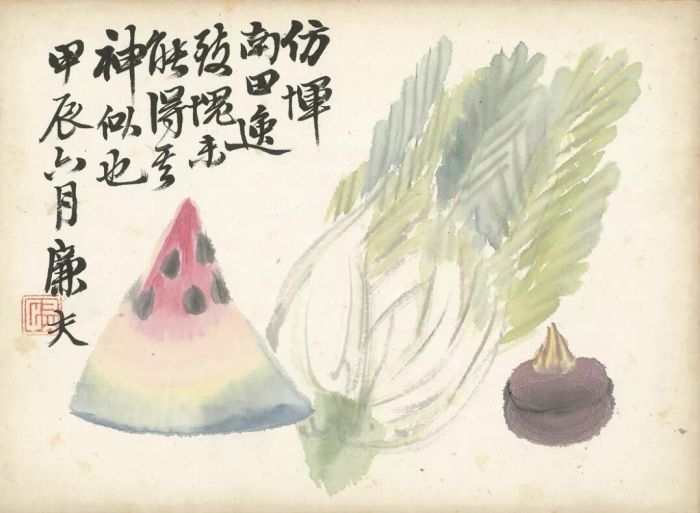 仿惲
南田逸
致愧未
能得其
神似也
甲辰六月廉夫